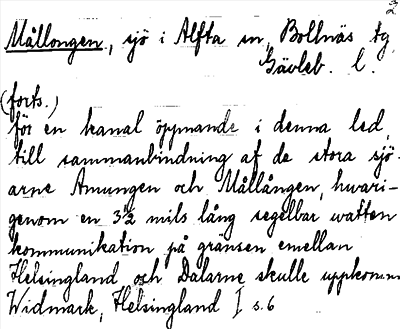 3/2
Mållongen, sjö i Alfta sn, Bollnäs tg
Gävleb. l.
(forts.)
för en kanal öppnande i denna led,
till sammanbindning af de stora sjö-
arne Amungen och Mållången, hvari-
genom en 3½ mils lång segelbar watten
kommunikation på gränsen emellan
Helsingland och Dalarne skulle uppkomm
Widmark, Helsingland I s. 6